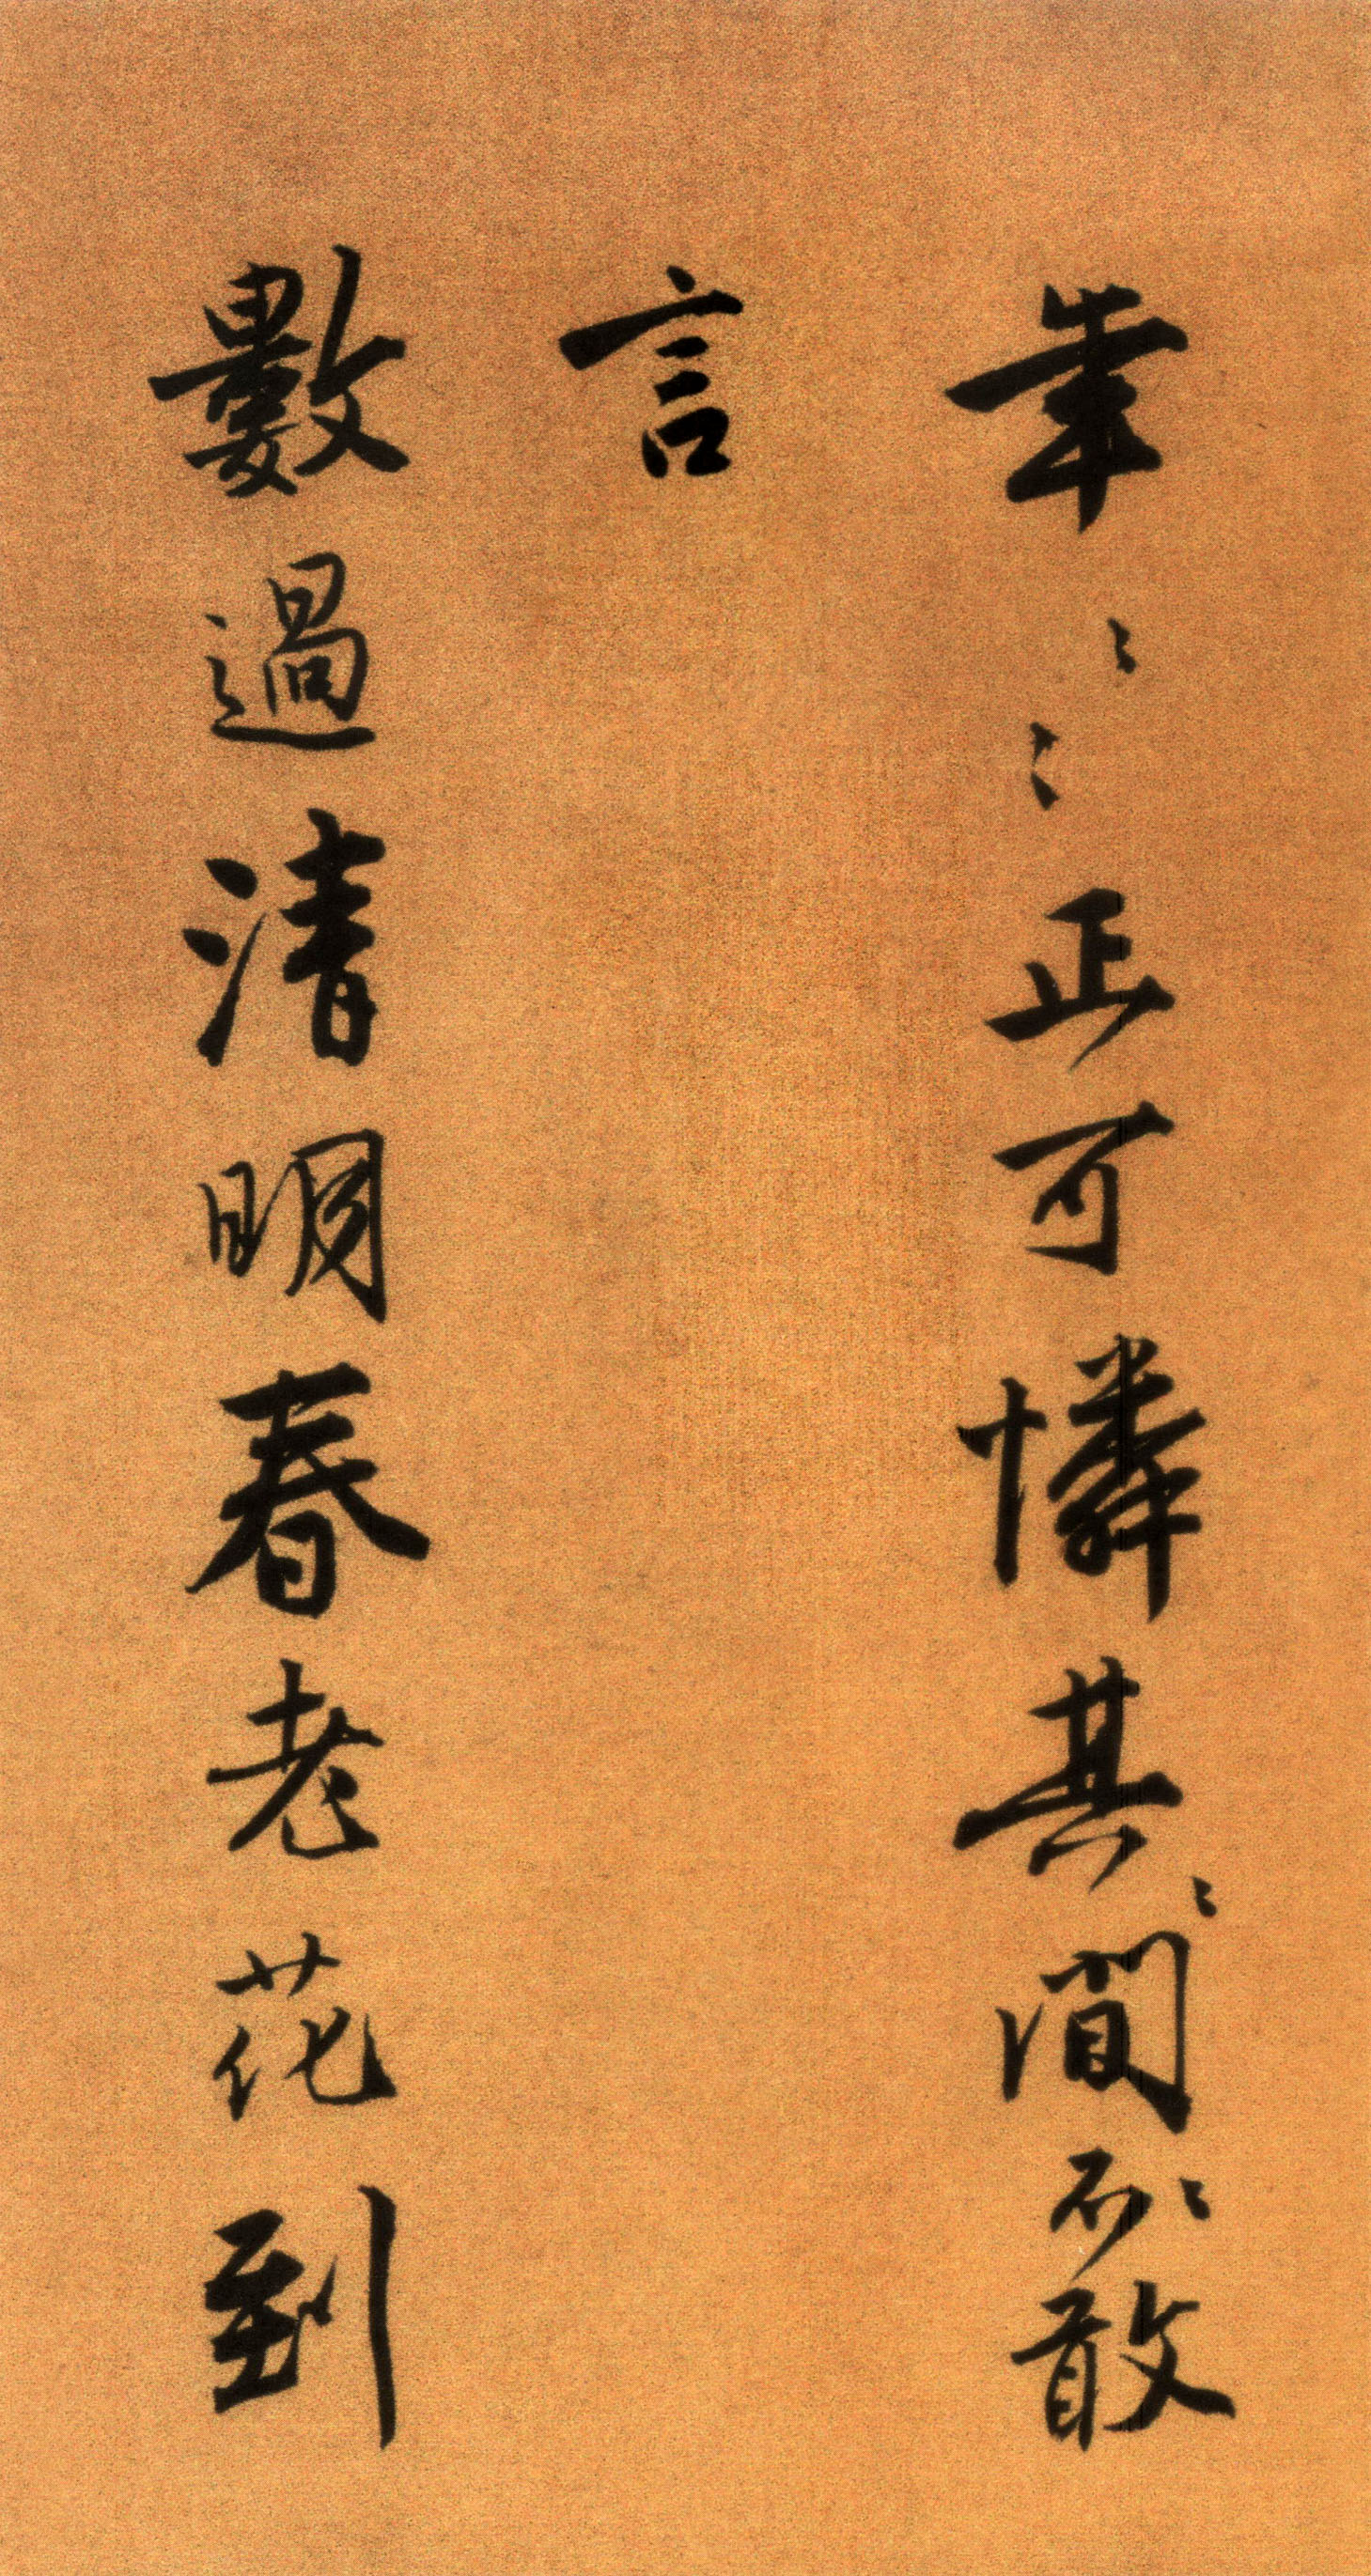 〻〻正可憐其間不敢
言
數過清明春老花到